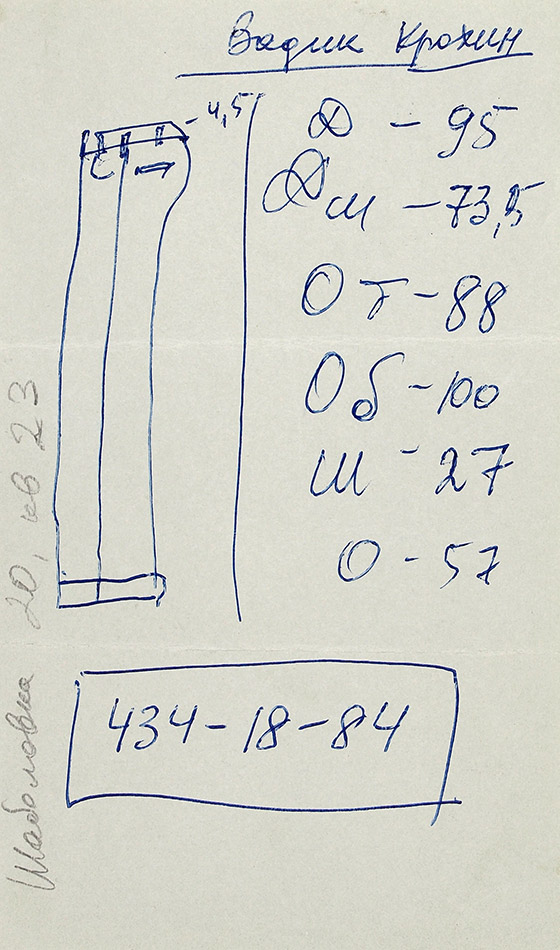 Вадик Крохин
- 4,5
Д - 95
Дш - 73,5
От - 88
Об - 100
Ш - 27
О - 57
434-18-84
Шаболовка 20, кв 23